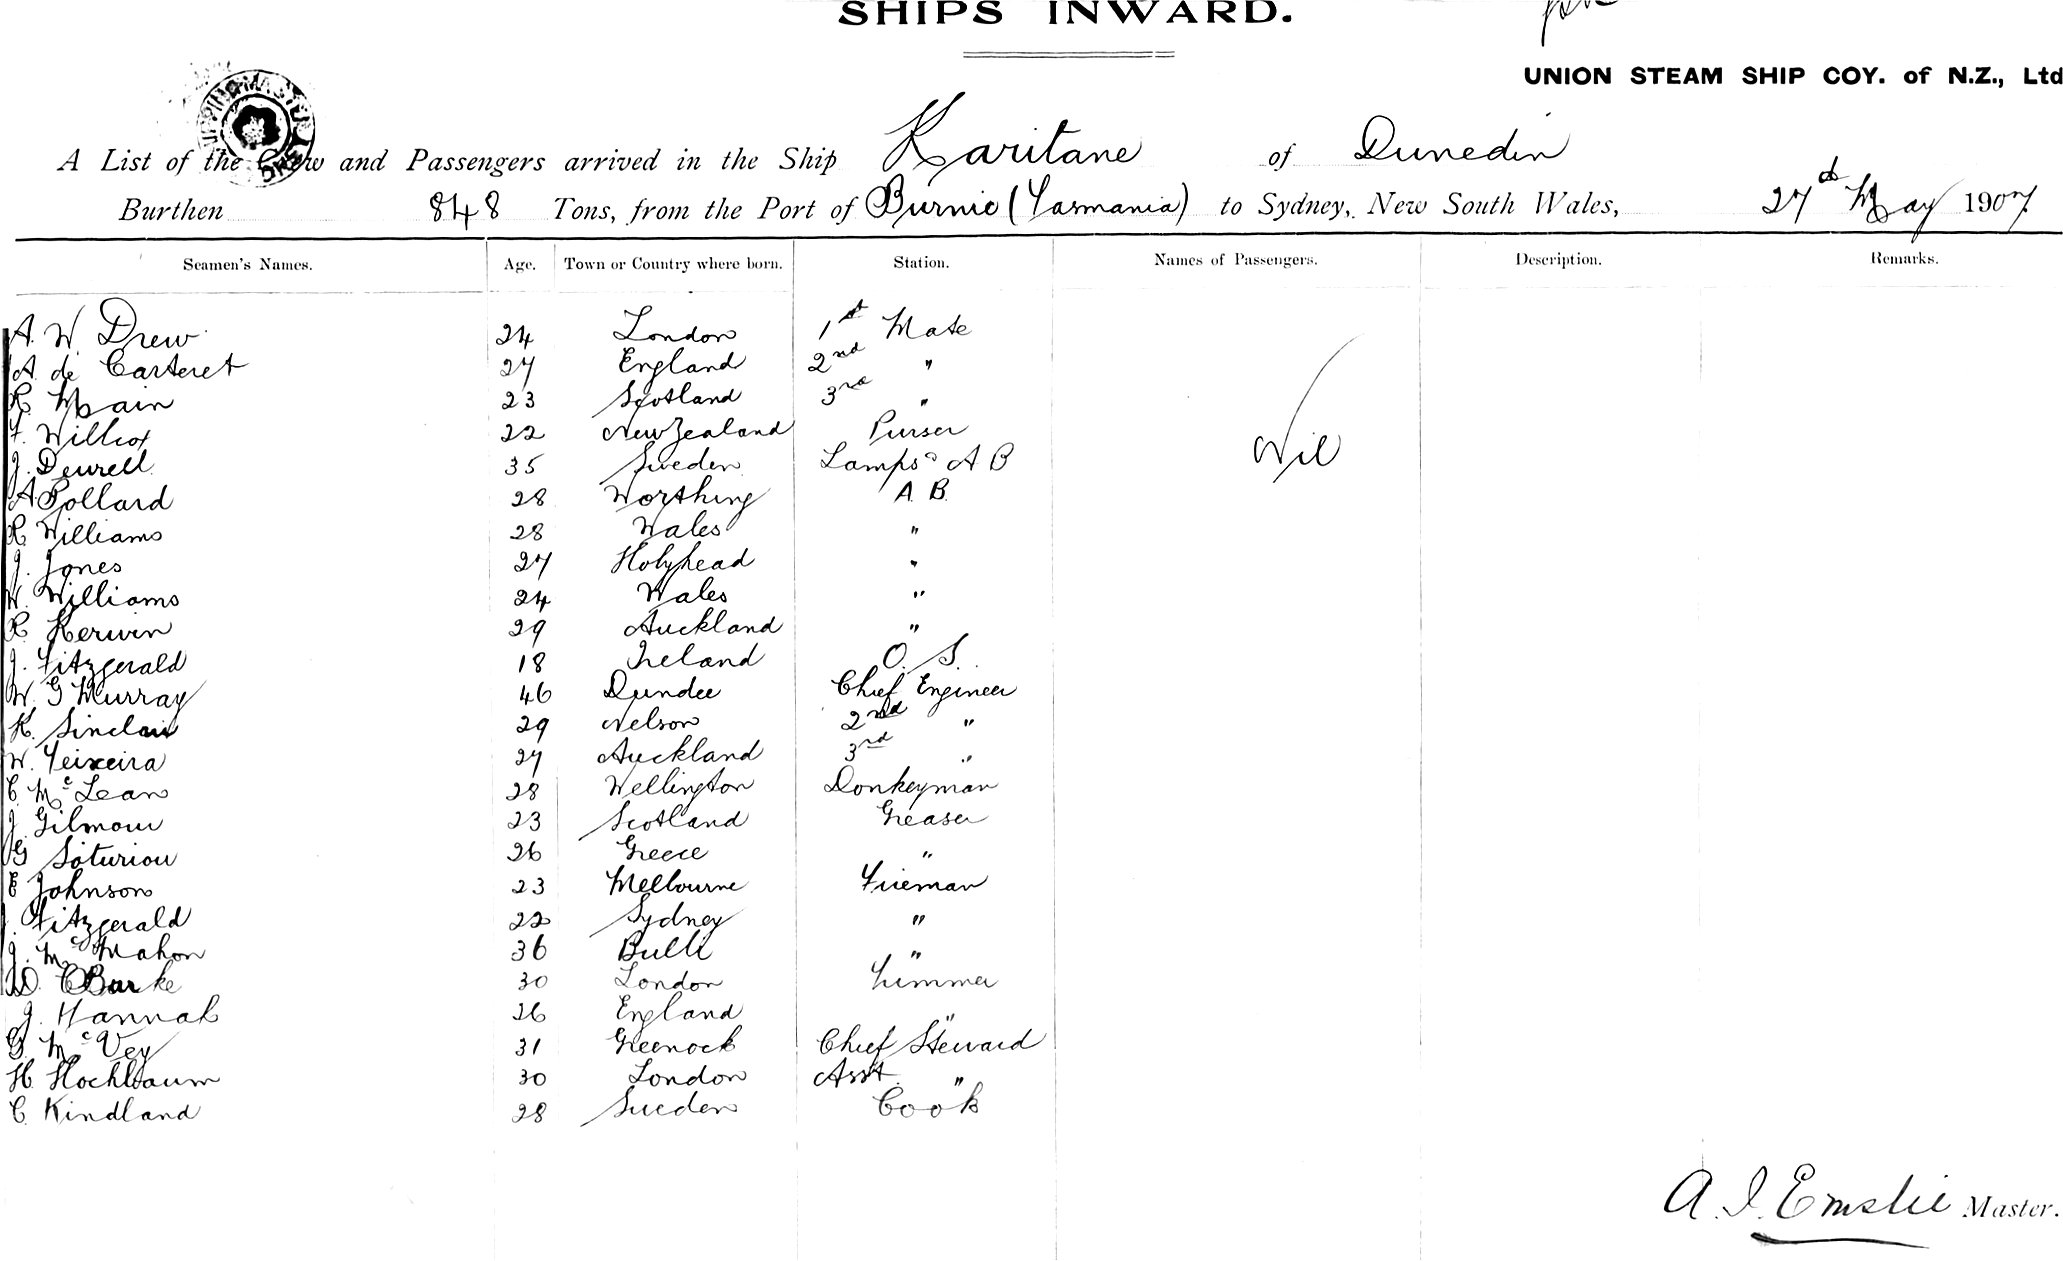 SHIPS INWARD.
UNION STEAM SHIP COY. of N.Z., Ltd
A List of the Crew and Passengers arrived in the Ship Karitane of Dunedin
Burthen 848 Tons, from the Port of Burnie (Tasmania) to Sydney, New South Wales, 27th May 1907
Seamen's Names. Age. Town or Country where born. Station. Names of Passengers. Description. Remarks.
A. W. Drew 24 London 1st Mate
A. de Carteret 27 England 2nd "
R. Main 23 Scotland 3rd "
F. Willcox 22 New Zealand Purser
J. Deurell 35 Sweden Lamps & A B
Nil
A Pollard 28 Worthing A. B.
R. Williams 28 Wales "
J. Jones 27 Holyhead "
W. Williams 24 Wales "
R. Kerwin 29 Auckland "
J. Fitzgerald 18 Ireland O. S.
W. G Murray 46 Dundee Chief Engineer
K. Sinclair 29 Nelson 2nd "
W. Teixeira 27 Auckland 3rd "
C. McLean 28 Wellington Donkeyman
J. Gilmour 23 Scotland Greaser
G Soturiou 26 Greece "
E Johnson 23 Melbourne Fireman
J. Fitzgerald 22 Sydney "
J. McMahon 36 Bulli "
D. Burke 30 London Trimmer
J. Hannah 26 England "
G. McVey 31 Greenock Chief Steward
H. Hochbaum 30 London Asst. "
C. Kindland 28 Sweden Cook
A. I. Emslie Master.